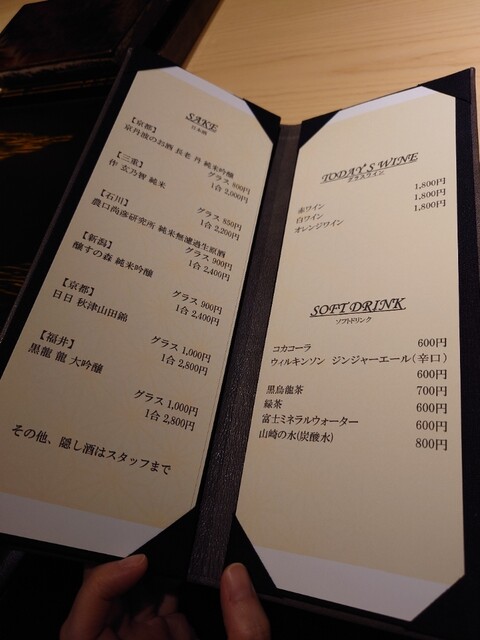 SAKE
日本酒
【京都】
京丹波のお酒 長老 丹 純米吟醸
グラス 800円
1合 2,000円
【三重】
作 玄乃智 純米
グラス 850円
1合 2,200円
【石川】
農口尚彦研究所 純米無濾過生原酒
グラス 900円
1合 2,400円
【新潟】
醸すの森 純米吟醸
グラス 900円
1合 2,400円
【京都】
日日 秋津山田錦
グラス 1,000円
1合 2,800円
【福井】
黒龍 龍 大吟醸
グラス 1,000円
1合 2,800円
その他、隠し酒はスタッフまで
TODAY'S WINE
グラスワイン
赤ワイン 1,800円
白ワイン 1,800円
オレンジワイン 1,800円
SOFT DRINK
ソフトドリンク
コカコーラ 600円
ウィルキンソン ジンジャーエール(辛口)
600円
黒烏龍茶 700円
緑茶 600円
富士ミネラルウォーター 600円
山崎の水(炭酸水) 800円